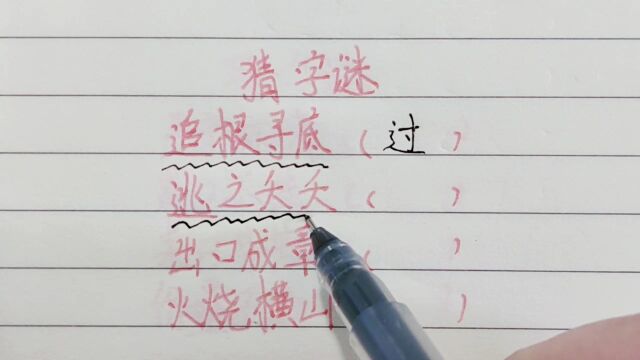 猜字谜
追根寻底（过）
逃之夭夭（ ）
出口成章（ ）
火烧横山 ）